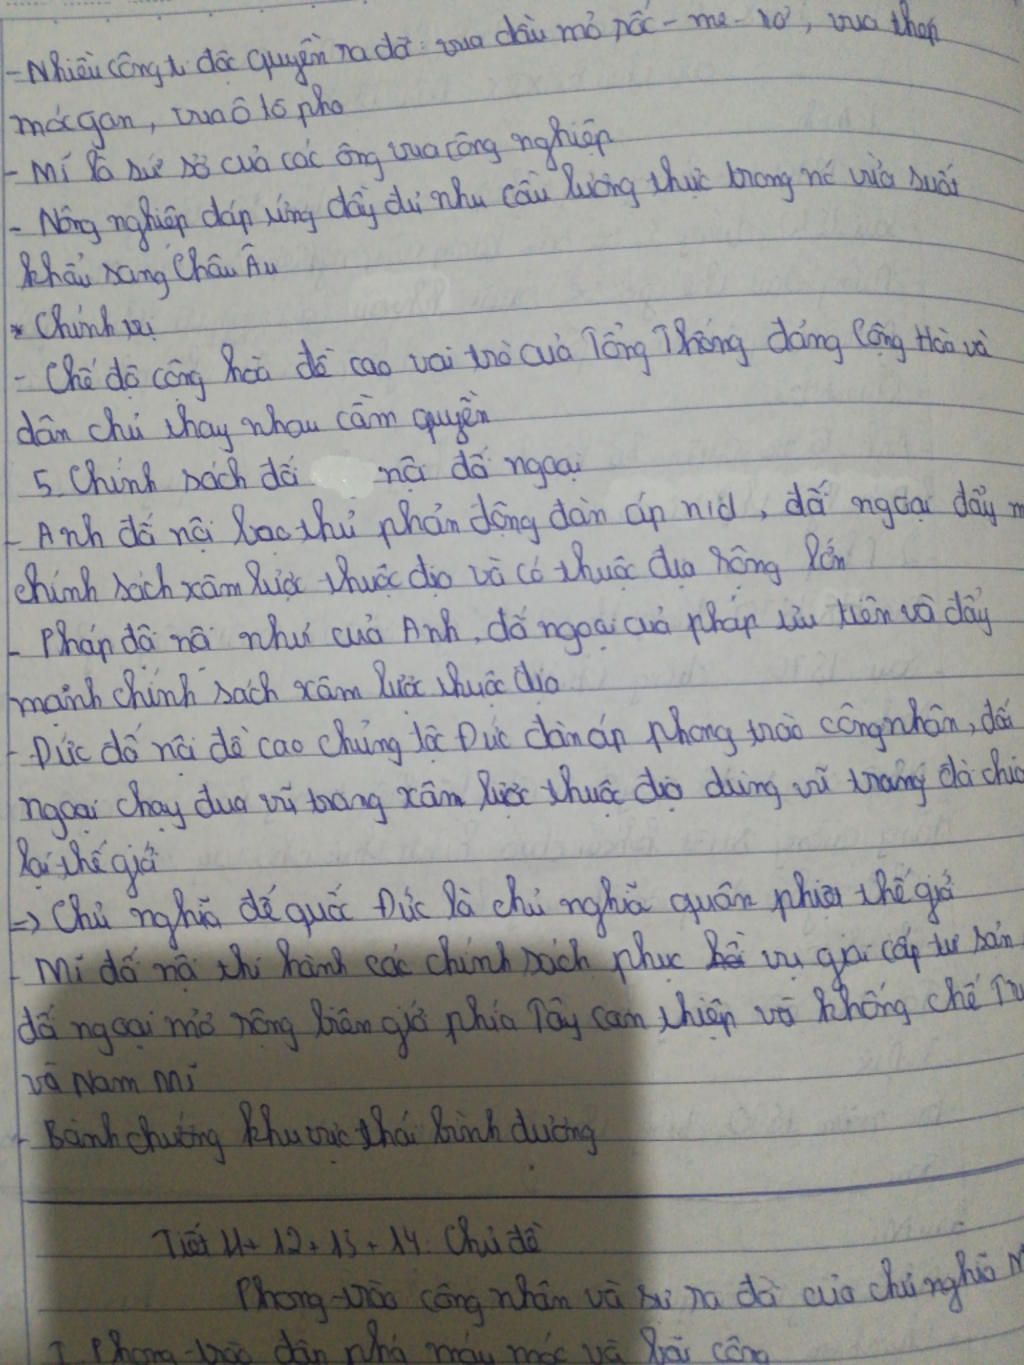 - Nhiều công ti độc quyền ra đời: vua dầu mỏ rốc - me - rơ, vua thép
moóc gan, vua ô tô pho
- Mĩ là sứ sở của các ông vua công nghiệp
- Nông nghiệp đáp ứng đầy đủ nhu cầu lương thực trong nc vừa suất
khẩu sang Châu Âu
* Chính trị
- Chế độ công hoà đề cao vai trò của Tổng Thống đảng Cộng Hoà và
dân chủ thay nhau cầm quyền
5. Chính sách đối nội đối ngoại
- Anh đối nội bảo thủ phản động đàn áp nd, đối ngoại đẩy m
chính sách xâm lược thuộc địa và có thuộc địa rộng lớn
- Pháp đối nội như của Anh, đối ngoại của pháp ưu tiên và đẩy
mạnh chính sách xâm lược thuộc địa
- Đức đối nội đề cao chủng tộc Đức đàn áp phong trào công nhân, đối
ngoại chạy đua vũ trang xâm lược thuộc địa dùng vũ trang đòi chia
lại thế giới
=> Chủ nghĩa đế quốc Đức là chủ nghĩa quân phiệt thế giới
- Mĩ đối nội thi hành các chính sách phục vụ giai cấp tư sản
đối ngoại mở rộng biên giới phía Tây can thiệp và khống chế Tru
và Nam Mĩ
- Bành chướng khu vực thái bình dương
Tiết 11 + 12 + 13 + 14: Chủ đề
Phong trào công nhân và sự ra đời của chủ nghĩa M
I. Phong trào đập phá máy móc và bãi công